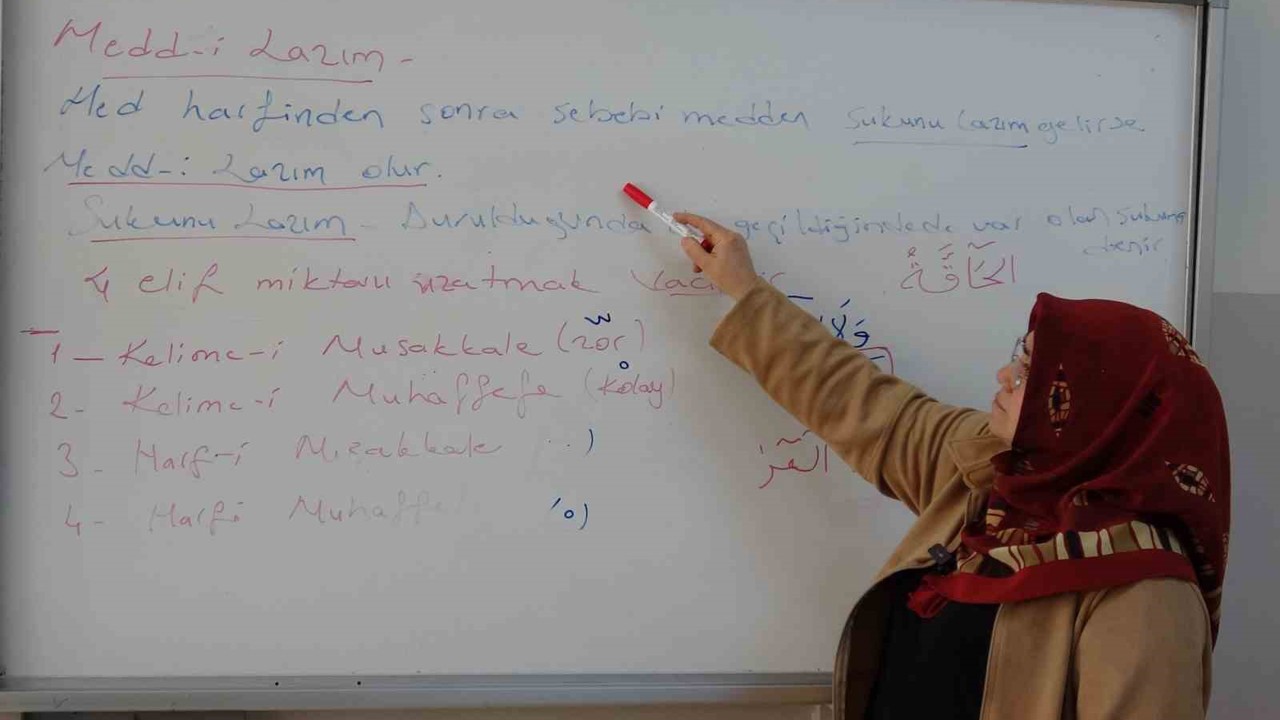 Medd-i Lazım -
Med harfinden sonra sebebi medden sukunu lazım gelirse
Medd-i Lazım olur.
Sukunu Lazım - Durulduğunda geçildiğindede var olan sukuna
denir
4 elif miktarı uzatmak
الحَآقَّةُ
1 - Kelime-i Musakkale (zor)
وَلَا
2- Kelime-i Muhaffefe (Kolay)
3 - Harf-i Musakkale
4- Harfi Muhaffe